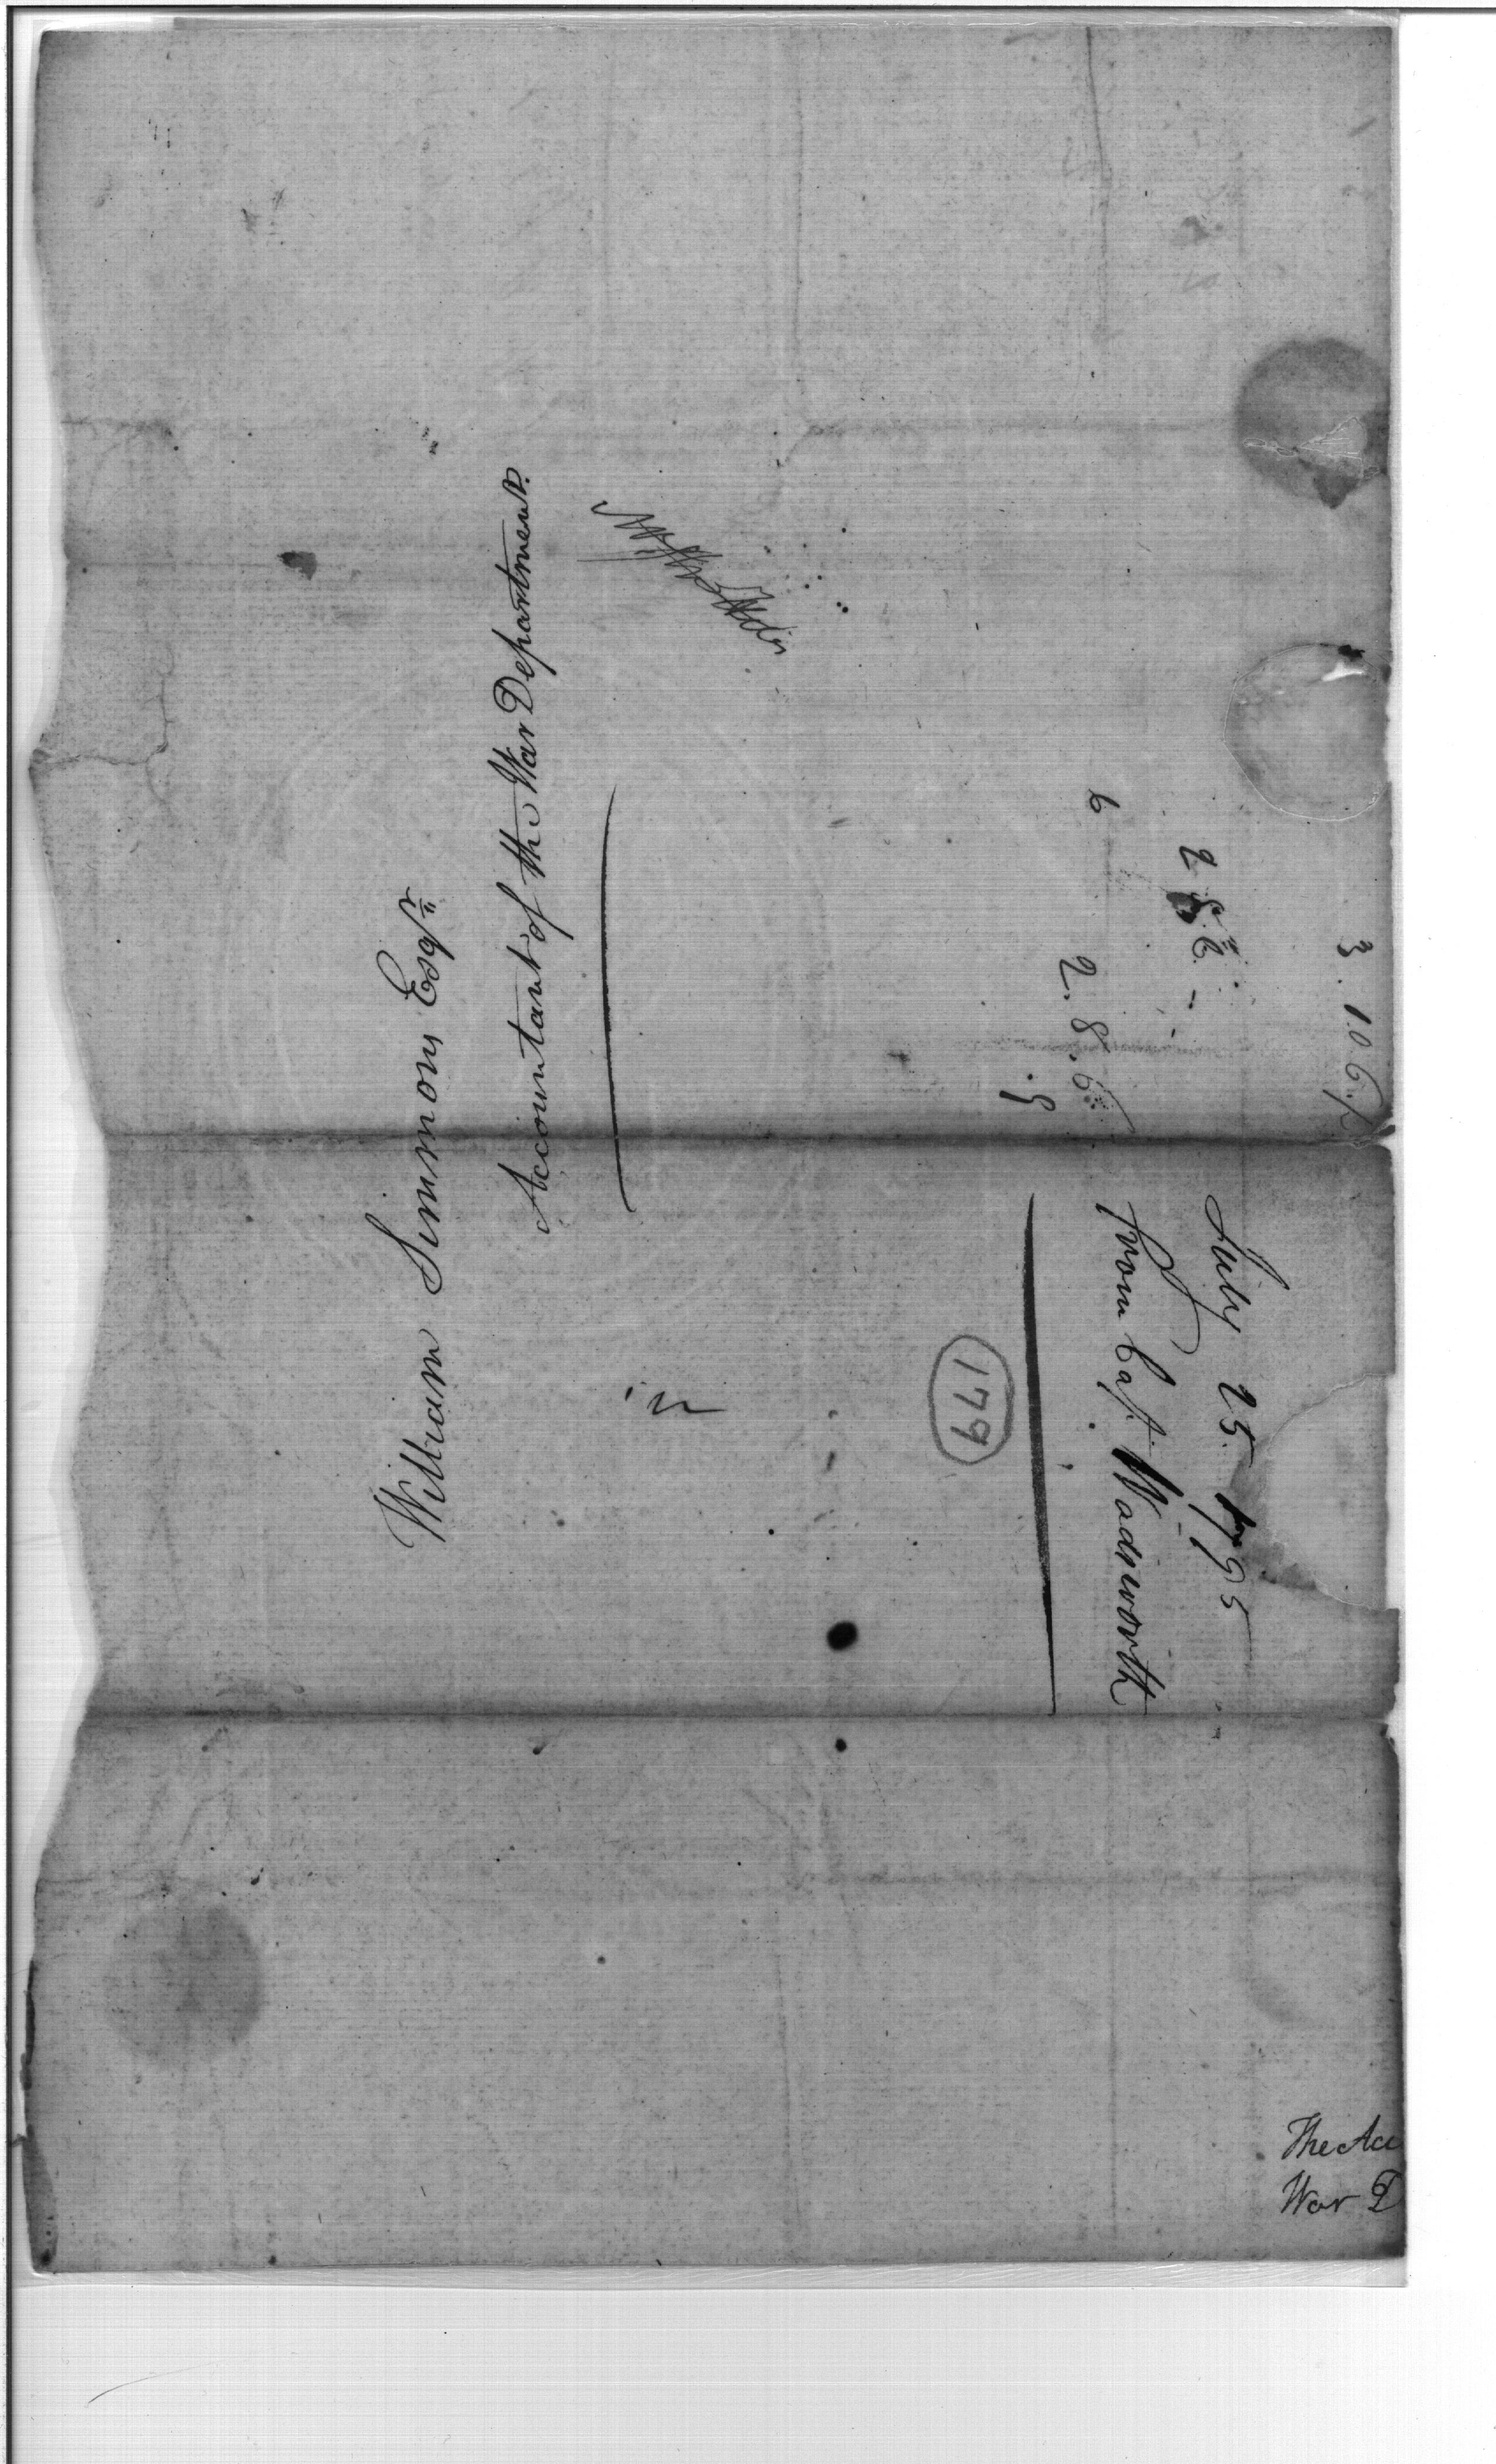 William Simmons Esqr
Accountant of the War Department.
July 25 1795
from Capt. Wadsworth
179
3.106
2 8 6 -
6
2.8.6
.9
The Acc
War D